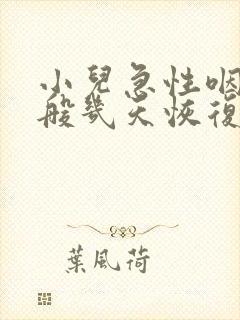 小兒急性咽
般幾天恢復
葉風荷